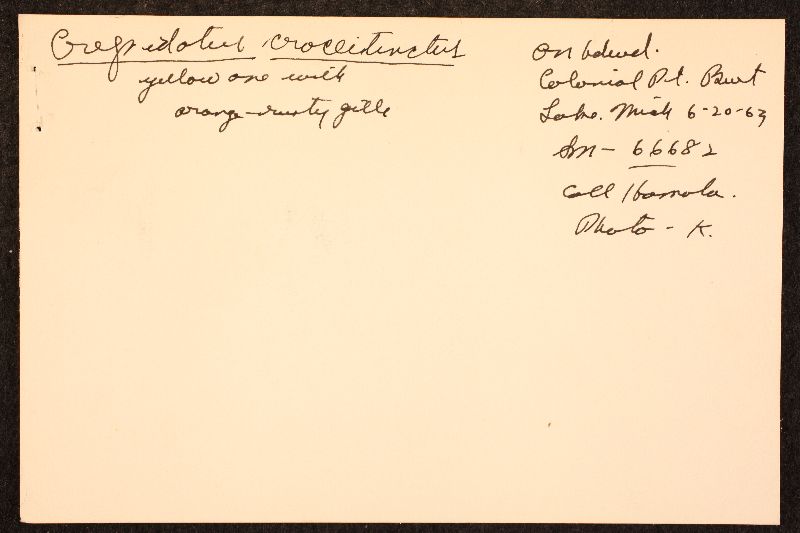 Crepidotus croceitinctus
yellow one with
orange-rusty gills
on hdwd.
Colonial Pt. Burt
Lake. Mich 6-20-63
Sm- 66682
Coll
Photo - K.